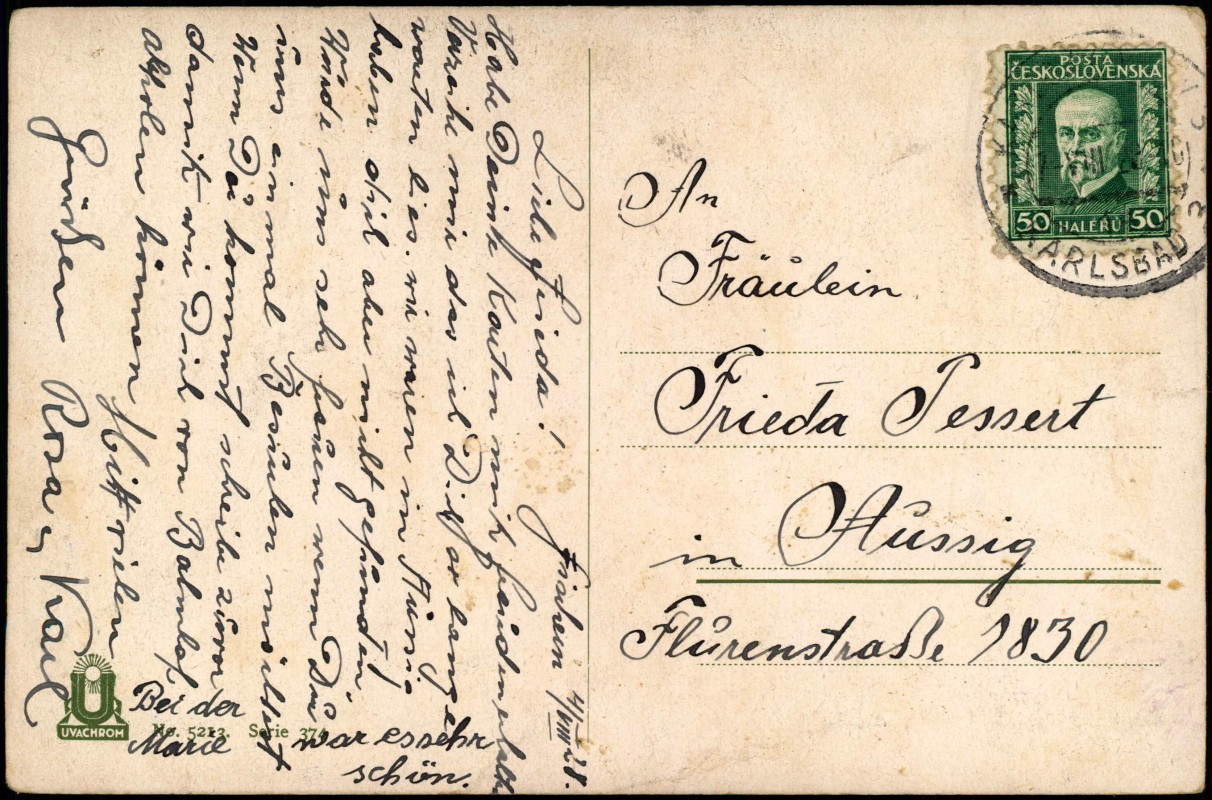 Fischern 4/VIII 28.
Liebe Frieda!
Habe Deine Karten mit Freuden erhalten
Verzeihe mir das ich Dich so lange
warten lies. wir waren in Aussig
haben dich aber nicht gefunden.
Würde uns sehr freuen wenn Du
uns einmal Besuchen möchtest
Wenn Du kommst schreibe zuvor
damit wir Dich von Bahnhof
abholen können Mit vielen
Grüßen Rosa u Karl
Bei der
Marie war es sehr
schön.
An
Fräulein
Frieda Pessert
in Aussig
Flurenstraße 1830
POSTA
ČESKOSLOVENSKÁ
50 HALERU 50
VIII
KARLSBAD 3
U
UVACHROM
No. 5213. Serie 374